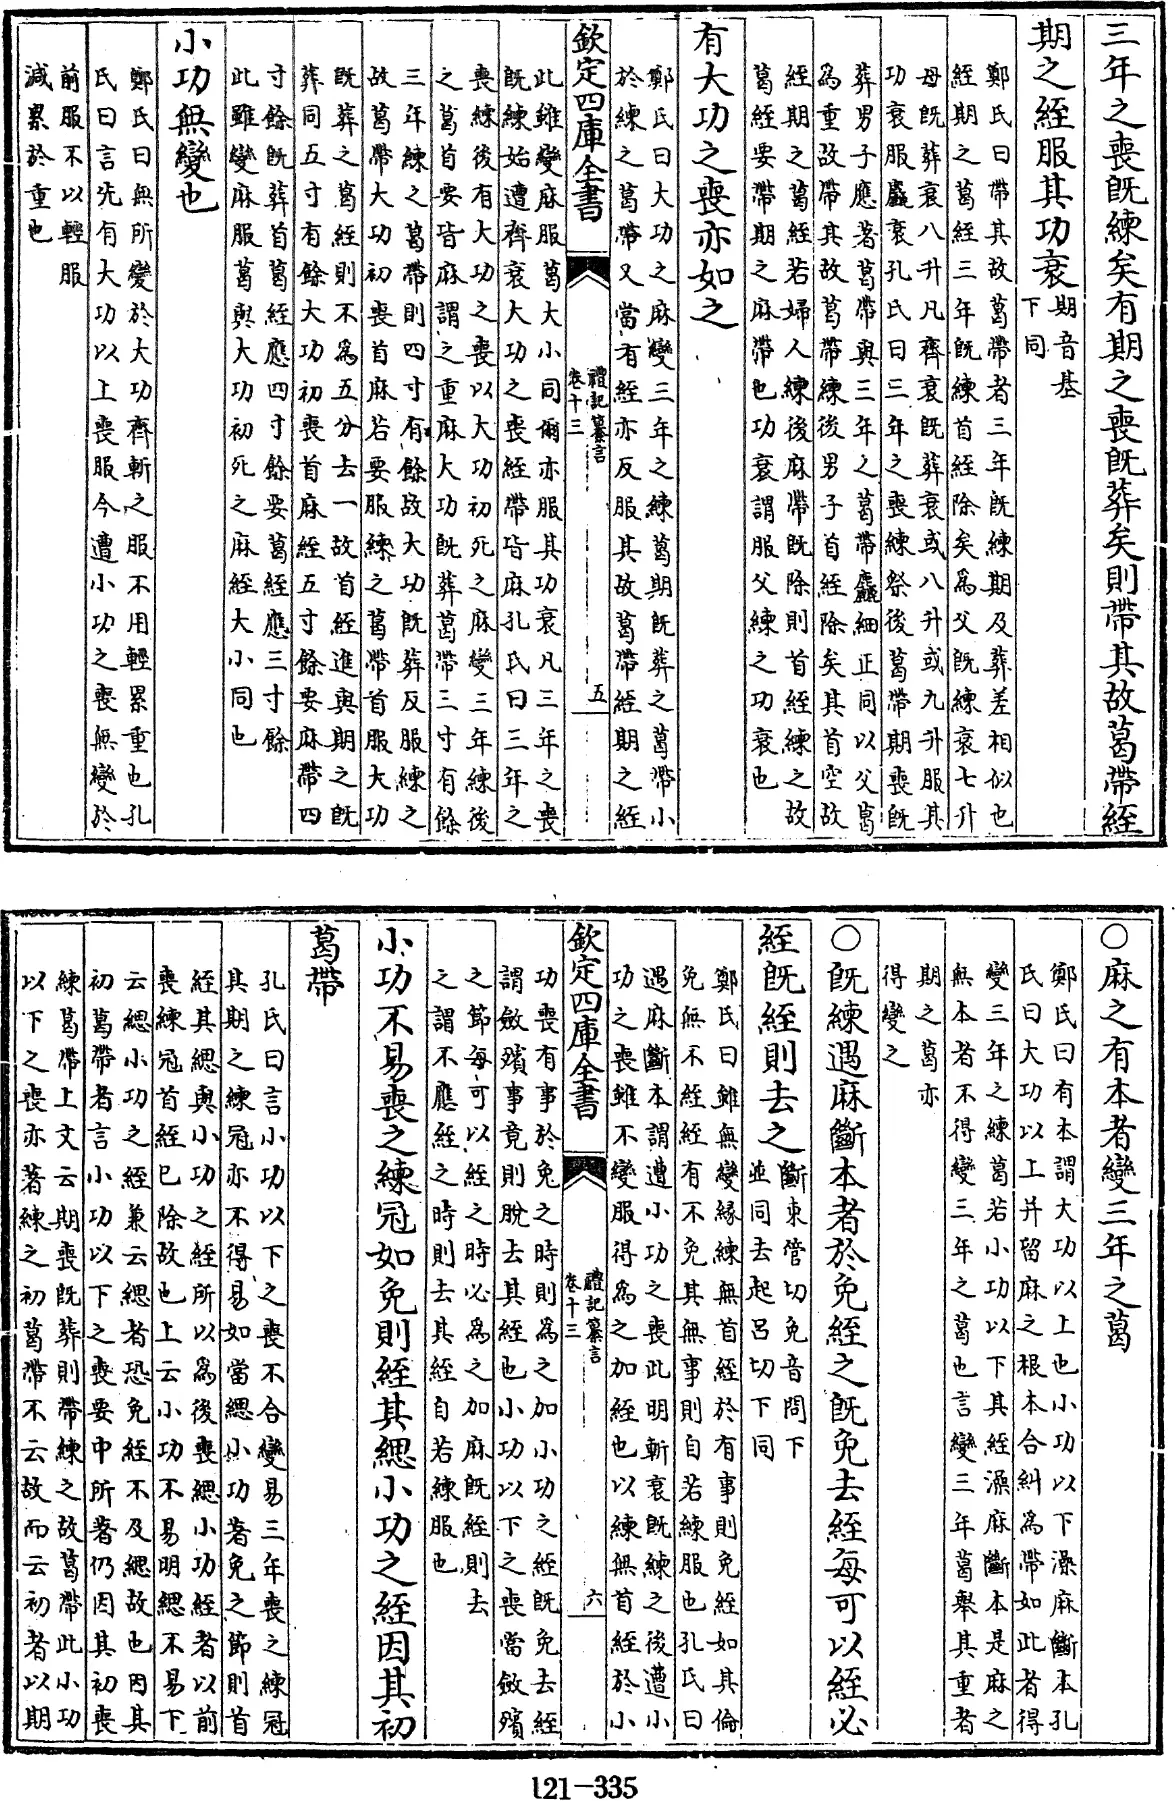 三年之喪既練矣有期之喪既葬矣則帶其故葛帶絰
期之絰服其功衰
期音基
下同
鄭氏曰帶其故葛帶者三年既練期及葬差相似也
經期之葛絰三年既練首絰除矣為父既練衰七升
母既葬衰八升凡齊衰既葬衰或八升或九升服其
功衰服麤衰孔氏曰三年之喪練祭後葛帶期喪既
葬男子應著葛帶與三年之葛帶麤細正同以父葛
為重故帶其故葛帶練後男子首絰除矣其首空故
絰期之葛絰若婦人練後麻帶既除則首絰練之故
葛絰要帶期之麻帶也功衰謂服父練之功衰也
有大功之喪亦如之
鄭氏曰大功之麻變三年之練葛期既葬之葛帶小
於練之葛帶又當有絰亦反服其故葛帶絰期之絰
欽定四庫全書
禮記纂言
卷十三
五
此雖變麻服葛大小同爾亦服其功衰凡三年之喪
既練始遭齊衰大功之喪絰帶皆麻孔氏曰三年之
喪練後有大功之喪以大功初死之麻變三年練後
之葛首要皆麻謂之重麻大功既葬葛帶三寸有餘
三年練之葛帶則四寸有餘故大功既葬反服練之
故葛帶大功初喪首麻若要服練之葛帶首服大功
既葬之葛絰則不為五分去一故首絰進與期之既
葬同五寸有餘大功初喪首麻絰五寸餘要麻帶四
寸餘既葬首葛絰應四寸餘要葛絰應三寸餘
此雖變麻服葛與大功初死之麻絰大小同也
小功無變也
鄭氏曰無所變於大功齊斬之服不用輕累重也孔
氏曰言先有大功以上喪服今遭小功之喪無變於
前服不以輕服
減累於重也
○麻之有本者變三年之葛
鄭氏曰有本謂大功以上也小功以下澡麻斷本孔
氏曰大功以上并留麻之根本合糾為帶如此者得
變三年之練葛若小功以下其絰澡麻斷本是麻之
無本者不得變三年之葛也言變三年葛舉其重者
期之葛亦
得變之
○既練遇麻斷本者於免絰之既免去絰每可以絰必
絰既絰則去之
斷東管切免音問下
並同去起呂切下同
鄭氏曰雖無變緣練無首絰於有事則免絰如其倫
免無不絰絰有不免其無事則自若練服也孔氏曰
遇麻斷本謂遭小功之喪此明斬衰既練之後遭小
功之喪雖不變服得為之加絰也以練無首絰於小
欽定四庫全書
禮記纂言
卷十三
六
功喪有事於免之時則為之加小功之絰既免去絰
謂斂殯事竟則脫去其絰也小功以下之喪當斂殯
之節每可以絰之時必為之加麻既絰則去
之謂不應絰之時則去其絰自若練服也
小功不易喪之練冠如免則絰其緦小功之絰因其初
葛帶
孔氏曰言小功以下之喪不合變易三年喪之練冠
其期之練冠亦不得易如當緦小功著免之節則首
絰其緦與小功之絰所以為後喪緦小功絰者以前
喪練冠首絰已除故也上云小功不易明緦不易下
云緦小功之絰兼云緦者恐免絰不及緦故也因其
初葛帶者言小功以下之喪要中所著仍因其初喪
練葛帶上文云期喪既葬則帶練之故葛帶此小功
以下之喪亦著練之初葛帶不云故而云初者以期
121-335